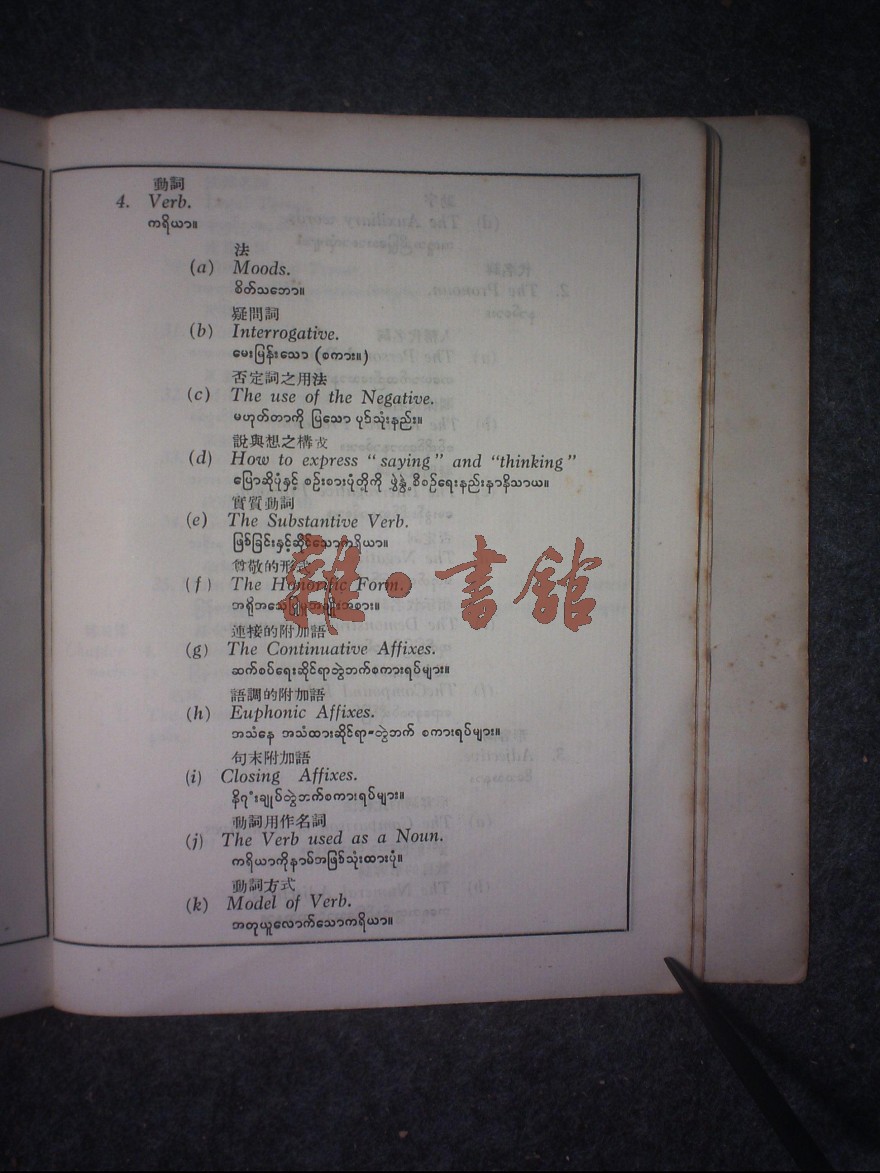 動詞
4. Verb.
ကရိယာ။
法
(a) Moods.
စိတ်သဘော။
疑問詞
(b) Interrogative.
မေးမြန်းသော (စကား။)
否定詞之用法
(c) The use of the Negative.
မဟုတ်တာကို ပြသော ပုဒ်သုံးနည်း။
說與想之構攻
(d) How to express "saying" and "thinking"
ပြောဆိုပုံနှင့် စဉ်းစားပုံတို့ကို ဖွဲ့နွဲ့စီစဉ်ရေးနည်းနာနိသာယ။
實質動詞
(e) The Substantive Verb.
ဖြစ်ခြင်းနှင့်ဆိုင်သောကရိယာ။
尊敬的形式
(f) The Honorific Form.
အရိုအသေပြုမူအမျိုးအစား။
連接的附加語
(g) The Continuative Affixes.
ဆက်စပ်ရေးဆိုင်ရာတွဲဘက်စကားရပ်များ။
語調的附加語
(h) Euphonic Affixes.
အသံနေ အသံထားဆိုင်ရာ-တွဲဘက် စကားရပ်များ။
句末附加語
(i) Closing Affixes.
နိဂုံးချုပ်တွဲဘက်စကားရပ်များ။
動詞用作名詞
(j) The Verb used as a Noun.
ကရိယာကိုနာမ်အဖြစ်သုံးထားပုံ။
動詞方式
(k) Model of Verb.
အတုယူလောက်သောကရိယာ။
雜·書館